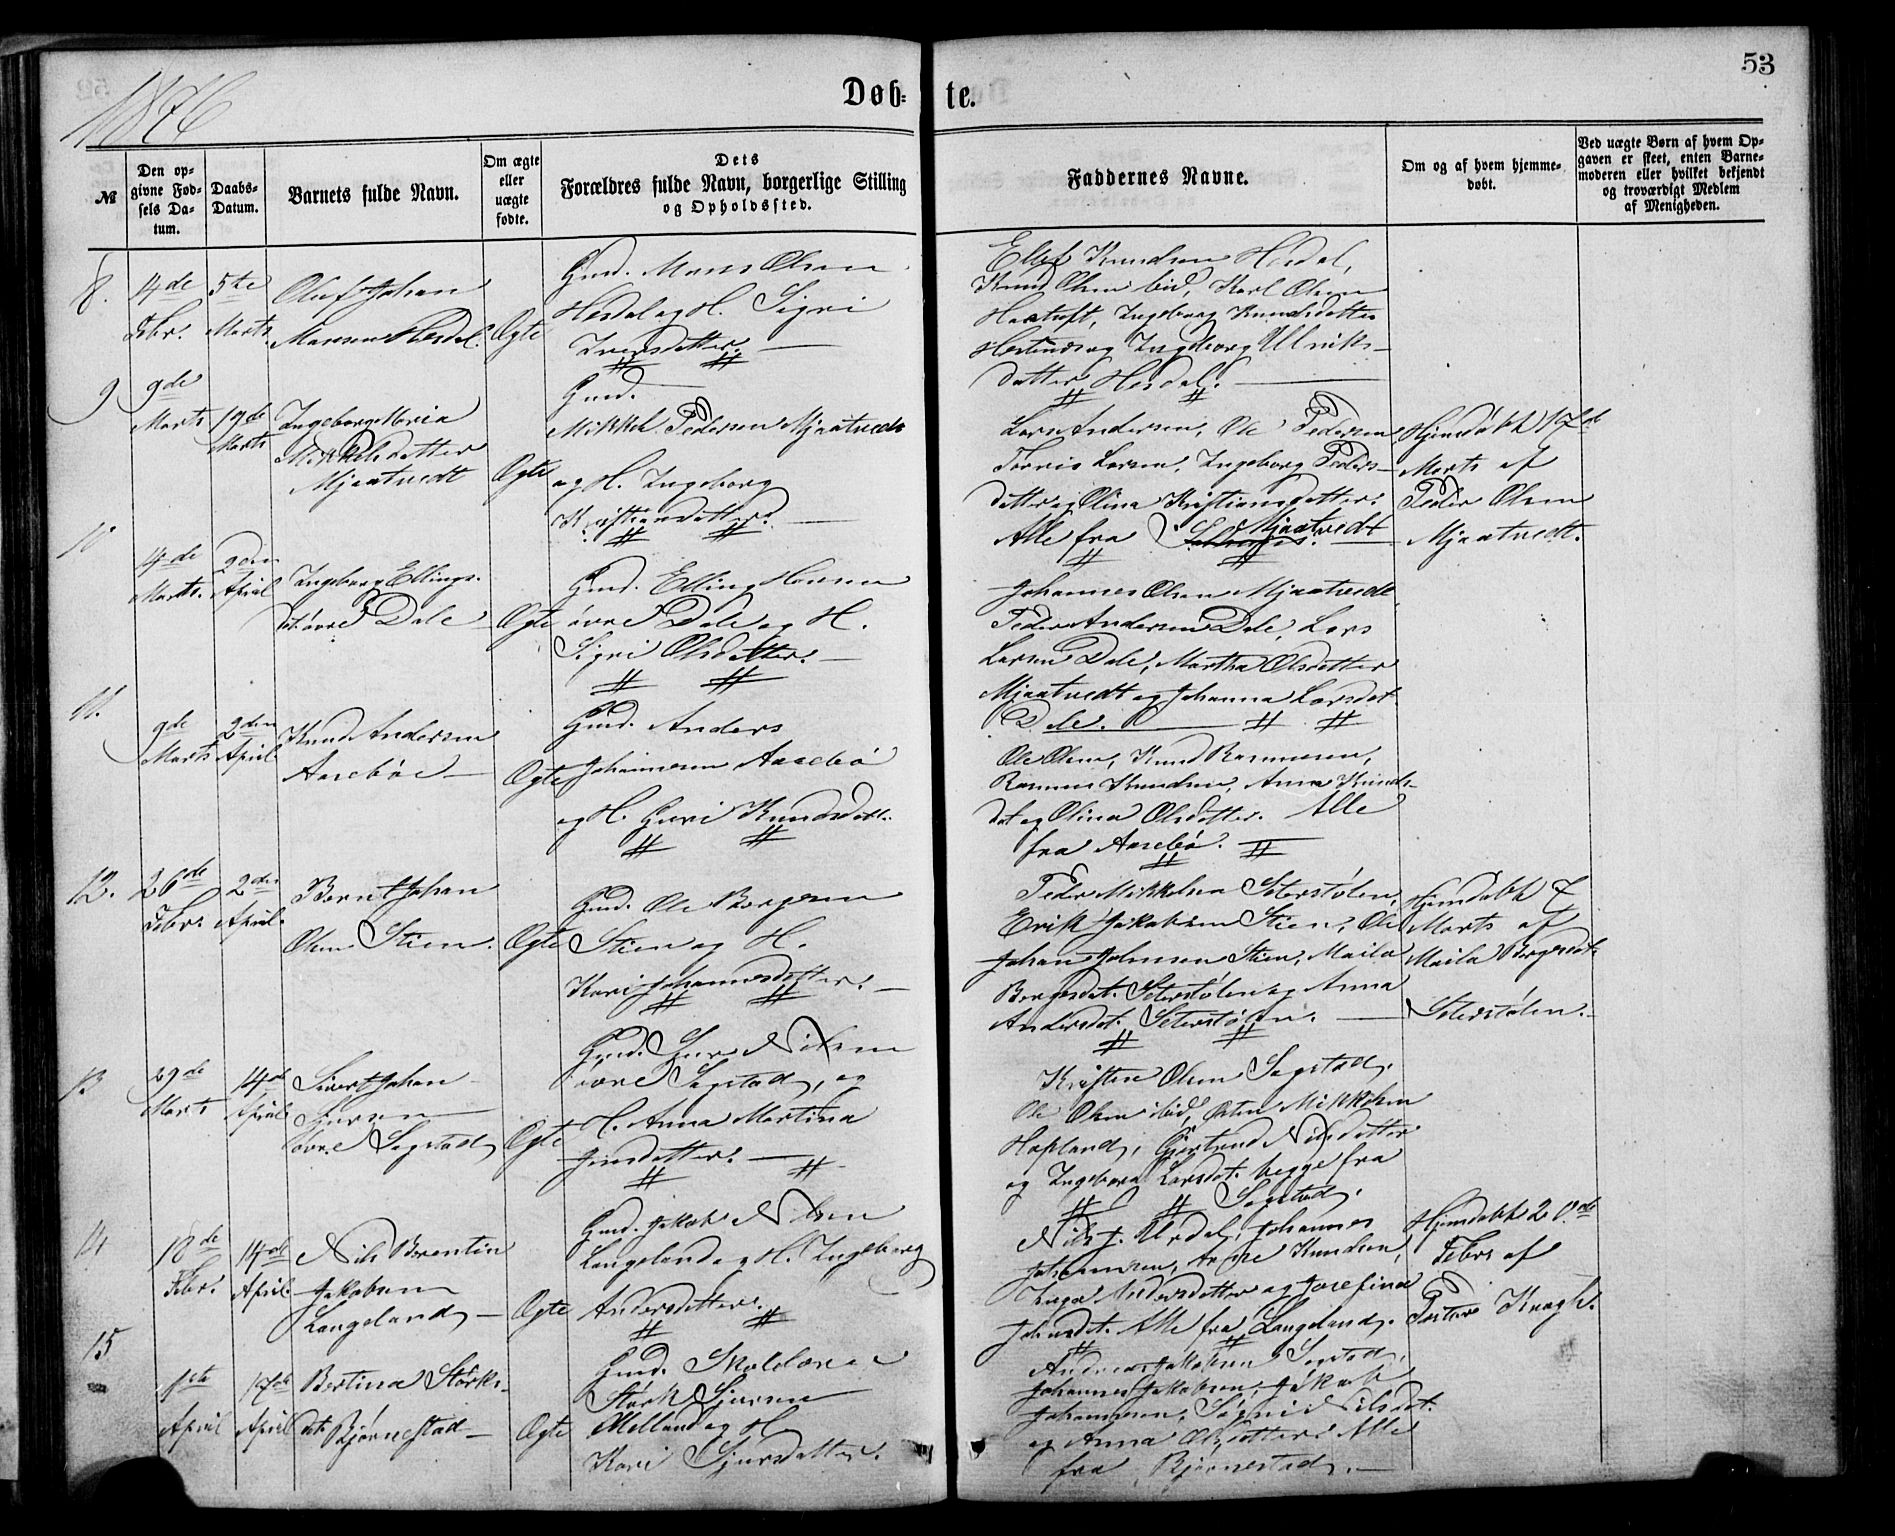 53
1876
Døb-te.
№
Den op-
givne Fød-
sels Da-
tum.
Daabs-
Datum.
Barnets fulde Navn.
Om ægte
eller
uægte
fødte.
Dets
Forældres fulde Navn, borgerlige Stilling
og Opholdssted.
Faddernes Navne.
Om og af hvem hjemme-
døbt.
Ved uægte Børn af hvem Op-
gaven er skeet, enten Barne-
moderen eller hvilket bekjendt
og troværdigt Medlem
af Menigheden.
8.
14de
Febr.
5te
Marts
Oluf Johan
Monsen Hosdal.
Ægte
Gmd. Mons Olsen
Hosdal og H. Sigri
Iversdatter.
Ellef Knudsen Hosdal,
Knud Olsen ibid, Karl Olsen
Hartuft, Ingeborg Knudsdatter
og Ingeborg Ulriks-
datter Hosdal.
9
9de
Marts
19de
Marts
Ingeborg Maria
Mikkelsdatter
Mjaatvedt
Ægte
Gmd.
Mikkel Pedersen Mjaatvedt
og H. Ingeborg
Kristiansdatter.
Lars Andersen, Ole Pedersen
Torris Larsen, Ingeborg Peders-
datter og Olina Kristiansdatter.
Alle fra Mjaatvedt
Hjemdøbt 17de
Marts af
Peder Olsen
Mjaatvedt.
10
14de
Marts.
2den
April
Ingeborg Ellings-
dat. øvre Dale
Ægte
Gmd. Elling Hansen
øvre Dale og H.
Sigri Olsdatter.
Johannes Olsen Mjaatvedt
Peder Andersen Dale, Lars
Larsen Dale, Martha Olsdatter
Mjaatvedt og Johanna Larsdat.
Dale.
11.
9de
Marts
2den
April
Knud Andersen
Aasebøe
Ægte
Gmd. Anders
Johannesen Aasebø
og H. Guri Knudsdatt.
Ole Olsen, Knud Rasmussen,
Rasmus Knudsen, Anna Knuds-
dat. og Olina Olsdatter. Alle
fra Aasebø.
12.
26de
Febr.
2den
April.
Bernt Johan
Olsen Stien.
Ægte
Gmd. Ole Borgesen
Stien og H.
Kari Johannesdatter.
Peder Mikkelsen Seterstølen,
Erik Jakobsen Stien, Ole
Johan Johnsen Stien, Maila
Borgesdat. Seterstølen og Anna
Andersdat. Seterstølen.
Hjemdøbt 7
Marts af
Maila Borgesdat.
Seterstølen.
13
29de
Marts
14de
April
Sivert Johan
Sjursen
øvre Sagstad
Ægte
Gmd. Sjur Nilsen
øvre Sagstad, og
H. Anna Martina
Jensdatter.
Kristen Olsen Sagstad,
Ole Olsen ibid, Østen Mikkelsen
Hopland, Gjertrud Nilsdatter
og Ingeborg Larsdat. begge fra
Sagstad.
14
18de
Febr.
14de
April.
Nils Berentin
Jakobsen
Langeland
Ægte
Gmd. Jakob Nilsen
Langeland og H. Ingeborg
Andersdatter.
Nils J. Urdal, Johannes
Johannesen, Knudsen,
Inga Andersdatter og Josefina
Johansdat. Alle fra Langeland.
Hjemdøbt 20de
Febr. af
Pastor Kragh.
15
1ste
April
17de
April
Bertina Størks-
dat. Bjørnestad
Ægte
Gmd. Skolelærer
Størk Sjursen
Melland og H.
Kari Sjursdatter.
Andreas Jakobsen Sagstad,
Johannes Jakobsen, Jakob
Johannesen, Sigri Nilsdat.
og Anna Olsdatter Alle
fra Bjørnestad.